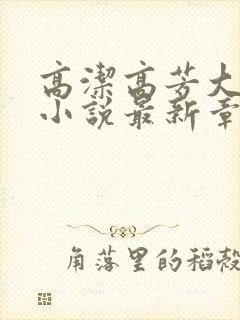 高潔高芳大
小說最新章
角落里的稻殼